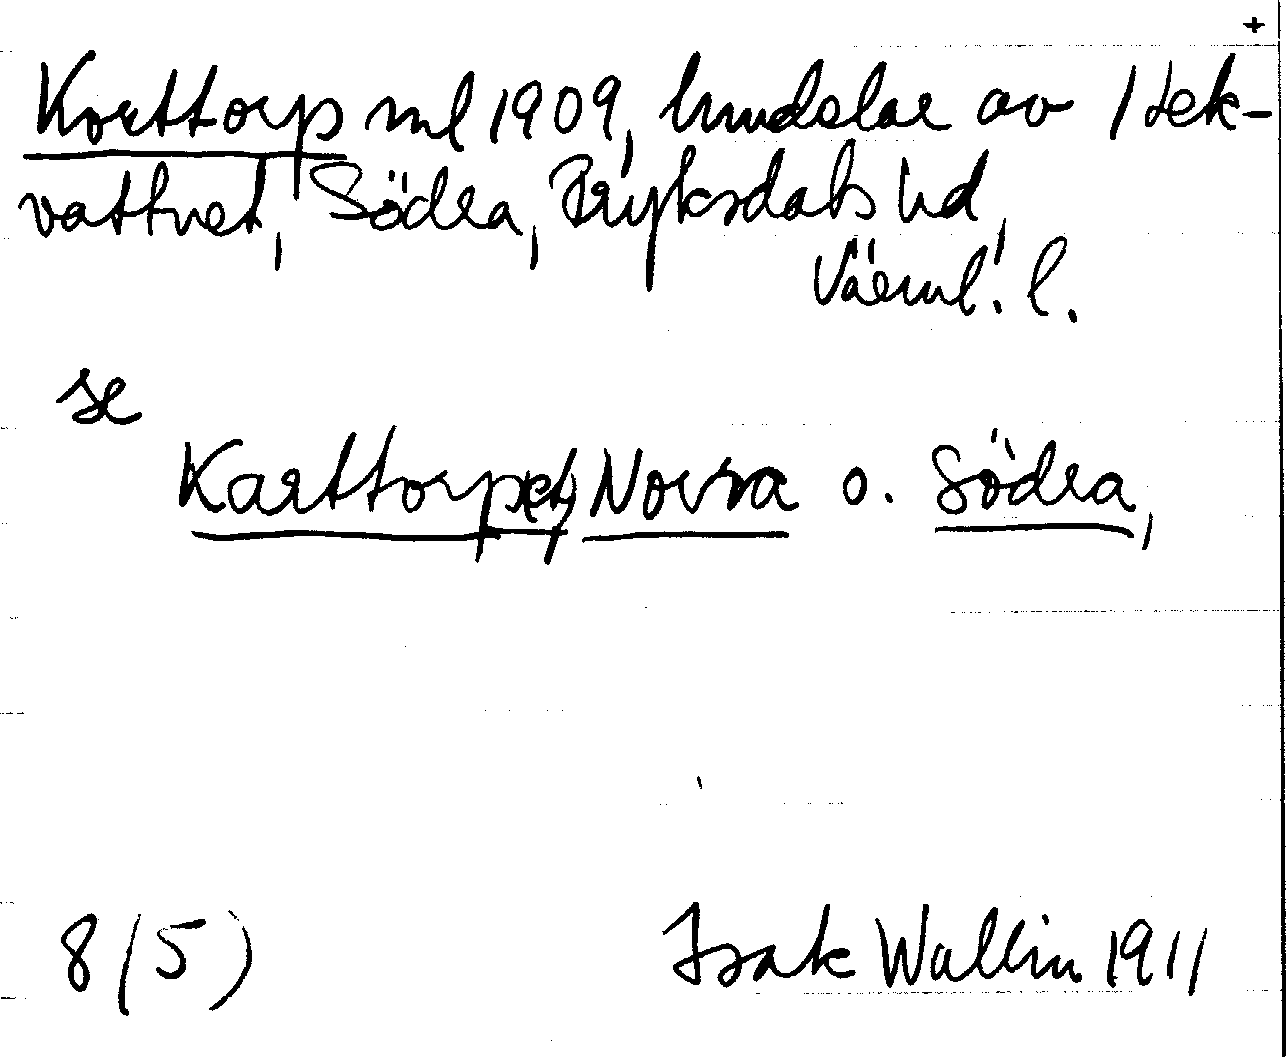 +
Korttorp ml 1909, hmdelar av 1 Lek-
vattnet, Södra, Fryksdals hd,
Värml. l.
se
Karttorp(et), Norra o. Södra,
8 (5)
Isak Wallin 1911